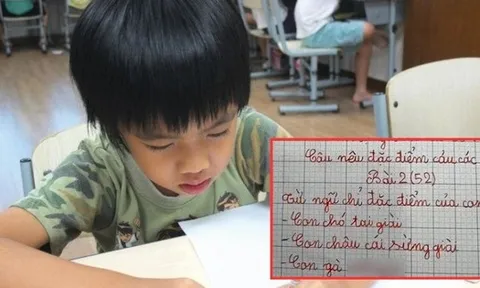 Câu nêu đặc điểm của các
Bài 2 (52)
Từ ngữ chỉ đặc điểm của con
- Con chó tai giài
- Con châu cái sừng giài
- Con gà